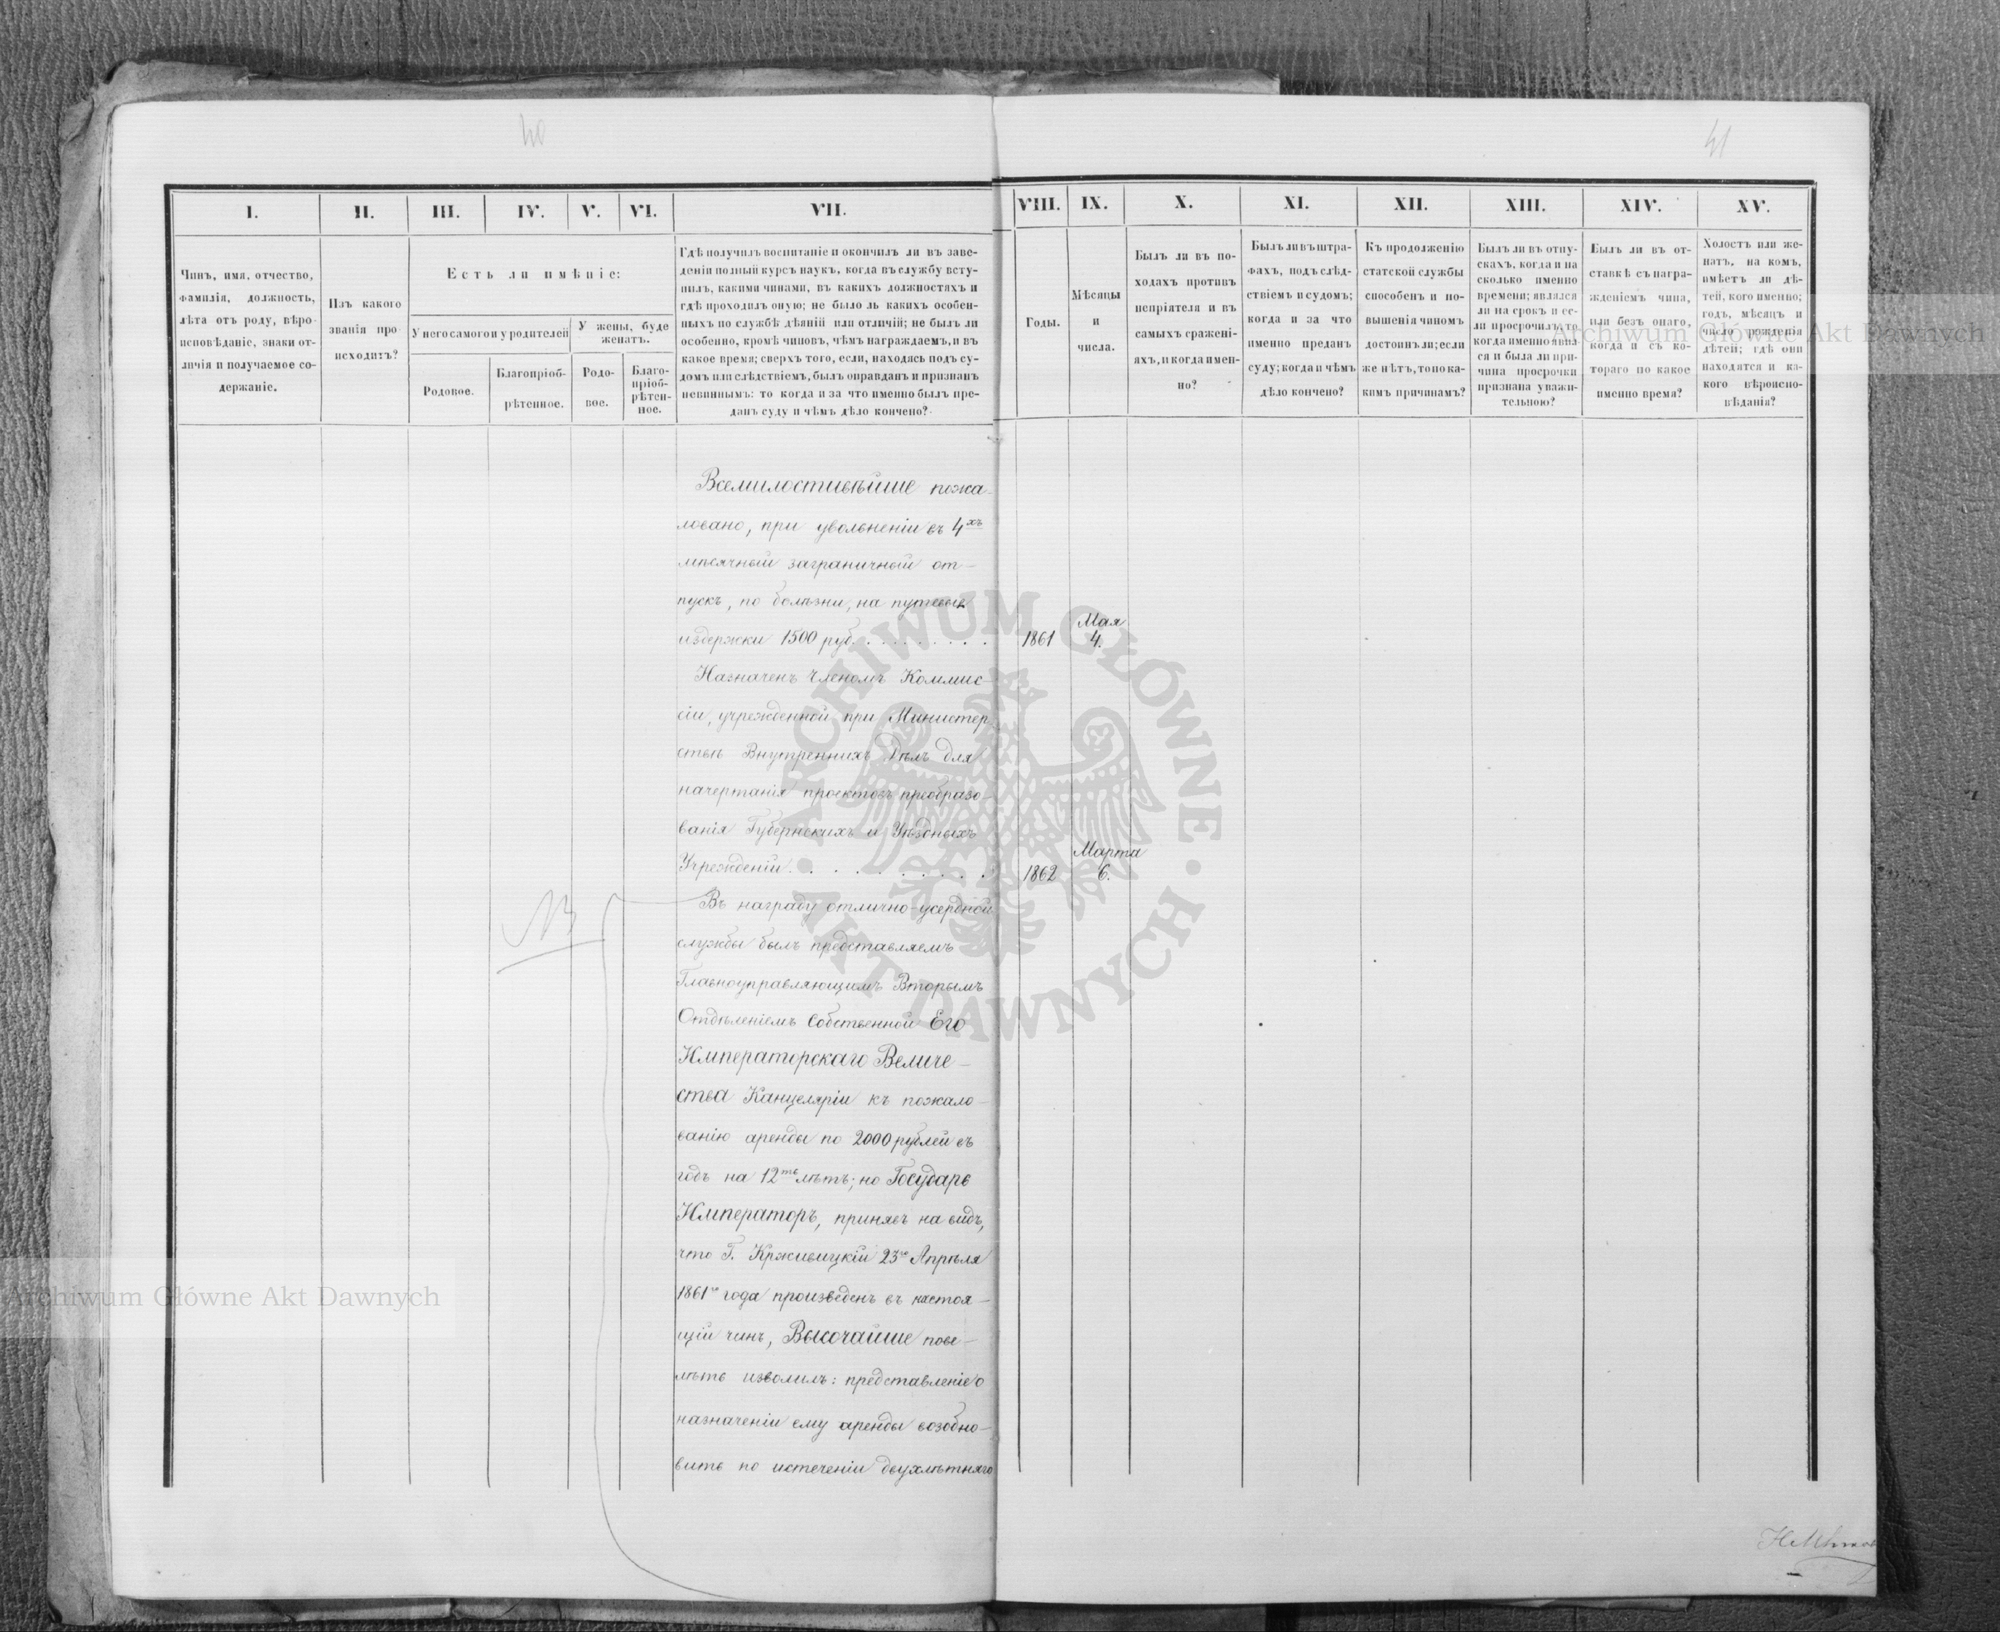 40
41
I.
II.
III.
IV.
V.
VI.
VII.
VIII.
IX.
X.
XI.
XII.
XIII.
XIV.
XV.
Чинъ, имя, отчество,
фамилія, должность,
лѣта отъ роду, вѣро-
исповѣданіе, знаки от-
личія и получаемое со-
держаніе.
Изъ какого
званія про-
исходитъ?
Есть ли имѣніе:
У него самого и у родителей
У жены, буде
женатъ.
Родовое.
Благопріоб-
рѣтенное.
Родо-
вое.
Благо-
пріоб-
рѣтен-
ное.
Гдѣ получилъ воспитаніе и окончилъ ли въ заве-
деніи полный курсъ наукъ, когда въ службу всту-
пилъ, какими чинами, въ какихъ должностяхъ и
гдѣ проходилъ оную; не было ль какихъ особен-
ныхъ по службѣ дѣяній или отличій; не былъ ли
особенно, кромѣ чиновъ, чѣмъ награждаемъ, и въ
какое время; сверхъ того, если, находясь подъ су-
домъ или слѣдствіемъ, былъ оправданъ и признанъ
невиннымъ: то когда и за что именно былъ пре-
данъ суду и чѣмъ дѣло кончено?
Годы.
Мѣсяцы
и
числа.
Былъ ли въ по-
ходахъ противъ
непріятеля и въ
самыхъ сражені-
яхъ, и когда имен-
но?
Былъ ли въ штра-
фахъ, подъ слѣд-
ствіемъ и судомъ;
когда и за что
именно преданъ
суду; когда и чѣмъ
дѣло кончено?
Къ продолженію
статской службы
способенъ и по-
вышенія чиномъ
достоинъ ли; если
же нѣтъ, то по ка-
кимъ причинамъ?
Былъ ли въ отпу-
скахъ, когда и на
сколько именно
времени; являлся
ли на срокъ и ес-
ли просрочилъ, то
когда именно явил-
ся и была ли при-
чина просрочки
признана уважи-
тельною?
Былъ ли въ от-
ставкѣ съ награ-
жденіемъ чина,
или безъ онаго,
когда и съ ко-
тораго по какое
именно время?
Холостъ или же-
натъ, на комъ,
имѣетъ ли дѣ-
тей, кого именно;
годъ, мѣсяцъ и
число рожденія
дѣтей; гдѣ они
находятся и ка-
кого вѣроиспо-
вѣданія?
Всемилостивѣйше пожа-
ловано, при увольненіи въ 4хъ
мѣсячный заграничный от-
пускъ, по болѣзни, на путевые
издержки 1500 руб. . . . . . . . .
1861
Мая
4.
Назначенъ Членомъ Коммис-
сіи, учрежденной при Министер-
ствѣ Внутреннихъ Дѣлъ для
начертанія проектовъ преобразо-
ванія Губернскихъ и Уѣздныхъ
Учрежденій. . . . . . . . .
1862
Марта
6.
NB
Въ награду отлично-усердной
службы былъ представляемъ
Главноуправляющимъ Вторымъ
Отдѣленіемъ Собственной Его
Императорскаго Величе-
ства Канцеляріи къ пожало-
ванію аренды по 2000 рублей въ
годъ на 12ть лѣтъ; но Государь
Императоръ, принявъ на видъ,
что Г. Крживицкій 23го Апрѣля
1861го года произведенъ въ настоя-
щій чинъ, Высочайше пове-
лѣть изволилъ: представленіе о
назначеніи ему аренды возобно-
вить по истеченіи двухлѣтняго
Archiwum Główne Akt Dawnych
Archiwum Główne Akt Dawnych
ARCHIWUM GŁÓWNE · AKT DAWNYCH ·